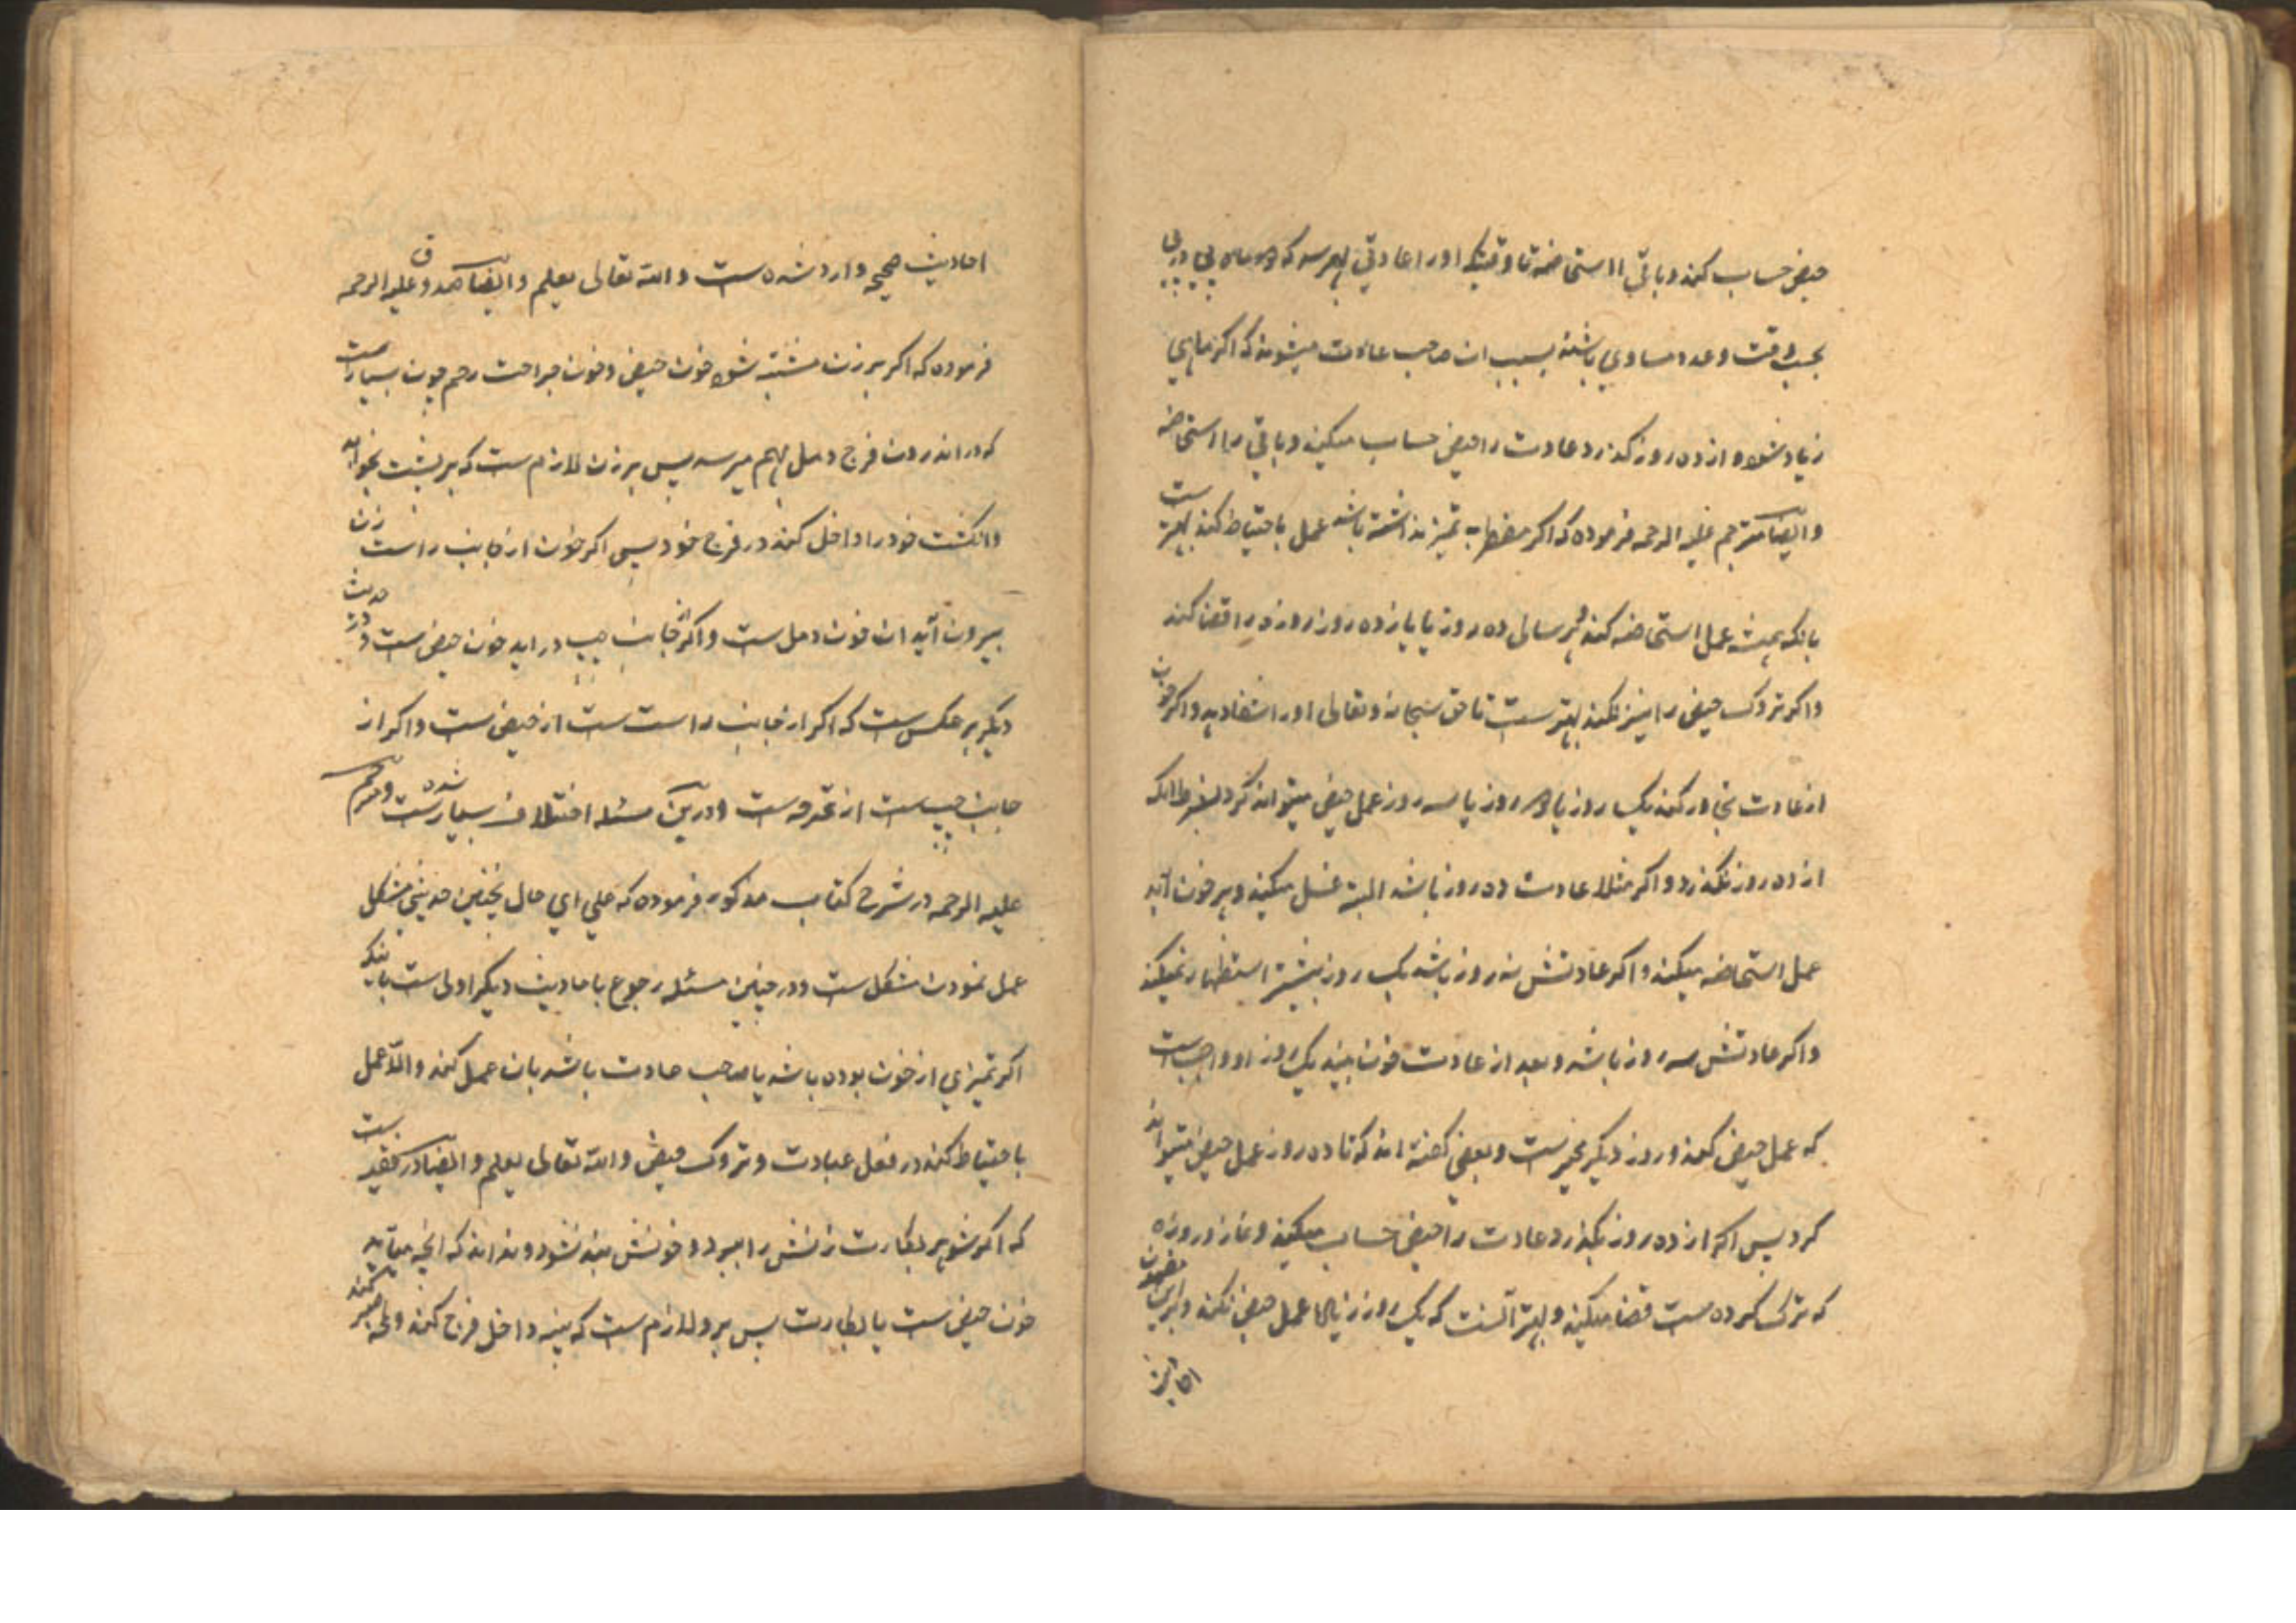 حیض حساب کند و باقی را استحاضه تا وقتیکه او را عادتی بهم رسد که دو ماه پی در پی
بحسب وقت و عدد مساوی باشند بسبب ان صاحب عادت میشوند که اکر ماهی
زیاد شود و از ده روز کذرد عادت را حیض حساب میکند و باقی را استحاضه
و ایضا مترجم علیه الرحمه فرموده که اکر مضطربه تمیز نداشته باشد عمل باحتیاط کند بهتر ست
بانکه همیشه عمل استحاضه کند و هر سالی ده روز یا یازده روز روزه را قضا کند
و اکر تروک حیض را نیز بکند بهتر ست تا حق سبحانه و تعالی او را شفا دهد و اکر خون
از عادت تجاوز کند یک روز یا دو روز یا سه روز عمل حیض میتواند کرد بشرط انکه
از ده روز نکذرد و اکر مثلا عادت ده روز باشد البته غسل میکند و هر خون آید
عمل استحاضه میکند و اکر عادتش نه روز باشد یک روز بیشتر استظهار نمیکند
و اکر عادتش سه روز باشد و بعد از عادت خون بیند یک روز او واجب ست
که عمل حیض کند و روز دیکر مخیر ست و بعضی کفته اند که تا ده روز عمل حیض میتواند
کرد پس اکر از ده روز بکذرد عادت را حیض حساب میکند و نماز و روزه
که ترک کرده ست قضا میکند و بهتر آنست که یک روز زیاده عمل حیض نکند و برین مضمون
احادیث
احادیث صحیحه وارد شده ست و الله تعالی یعلم و ایضا صدوق علیه الرحمه
فرموده که اکر بر زن مشتبه شود خون حیض و خون جراحت رحم چون بسیار ست
که در اندرون فرج دمل بهم میرسد پس بر زن لازم ست که بر پشت بخوابد
و انکشت خود را داخل کند در فرج خود پس اکر خون از جانب راست زن
بیرون آید ان خون دمل ست و اکر از جانب چپ در اید خون حیض ست و در حدیث
دیکر بر عکس ست که اکر از جانب راست ست از حیض ست و اکر از
جانب چپ ست از قرحه ست و درین مسئله اختلاف بسیار شده ست و مترجم
علیه الرحمه در شرح کتاب مذکور فرموده که علی ای حال بچنین حدیثی مشکل
عمل نمودن مشکل ست و در چنین مسئله رجوع باحادیث دیکر اولی ست بانکه
اکر تمیزی از خون بوده باشد یا صاحب عادت باشد بان عمل کند و الا عمل
باحتیاط کند در فعل عبادت و تروک حیض و الله تعالی یعلم و ایضا در فقیه ست
که اکر شوهر بکارت زنش را ببرد و خونش بند نشود و نداند که انچه میاید
خون حیض ست یا بکارت پس برو لازم ست که پنبه داخل فرج کند و لمحه صبر کند